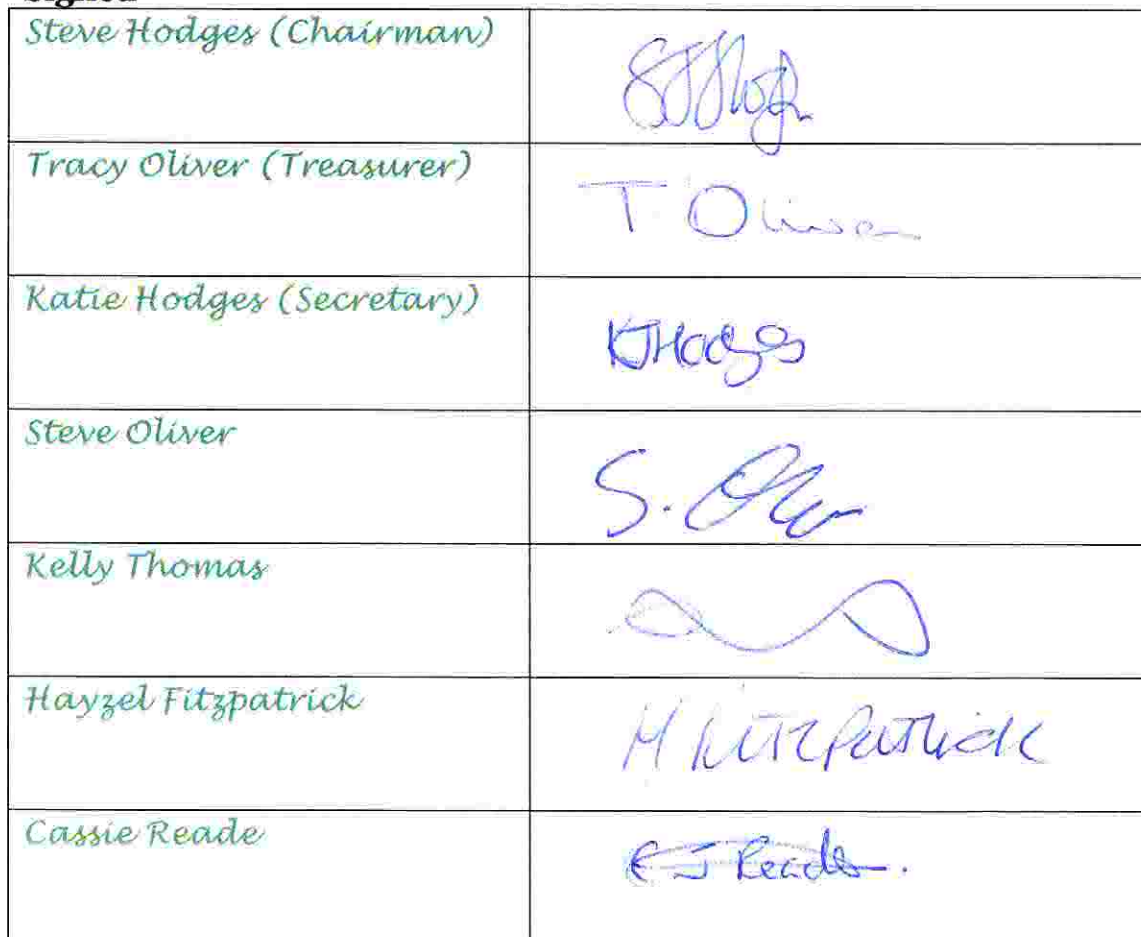 Signed
Steve Hodges (Chairman)
Tracy Oliver (Treasurer)
T Oliver
Katie Hodges (Secretary)
KJHodges
Steve Oliver
S. Oliver
Kelly Thomas
Hayzel Fitzpatrick
H Fitzpatrick
Cassie Reade
J Reade.